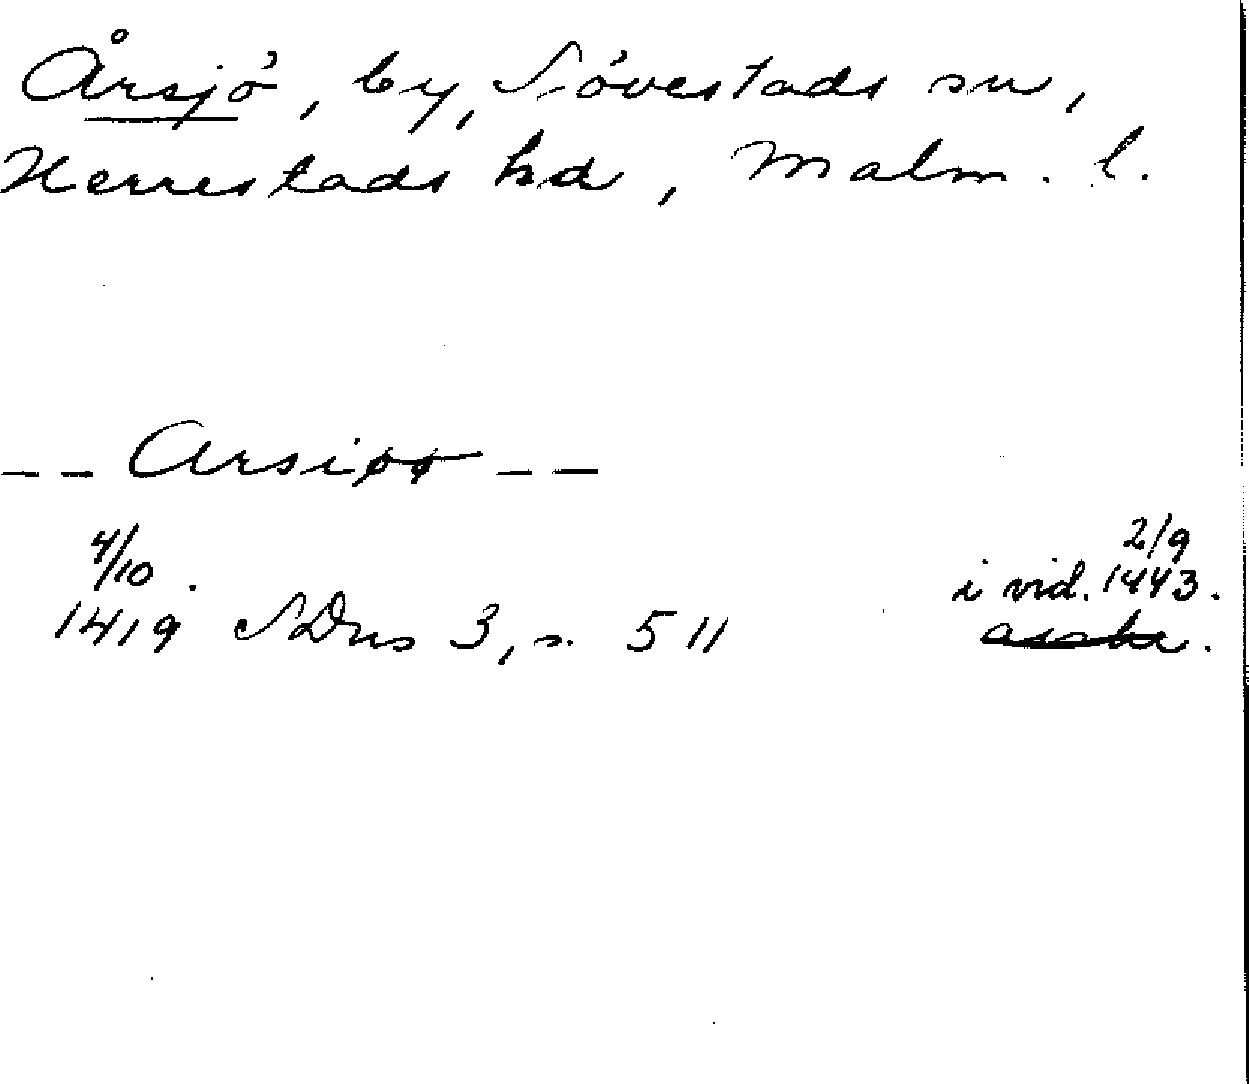 Årsjö, by, Sövestads sn,
Herrestads hd, Malm. l.
-- Arsiøø --
4/10. 2/9
i vid. 1443.
1419 SDns 3, s. 511